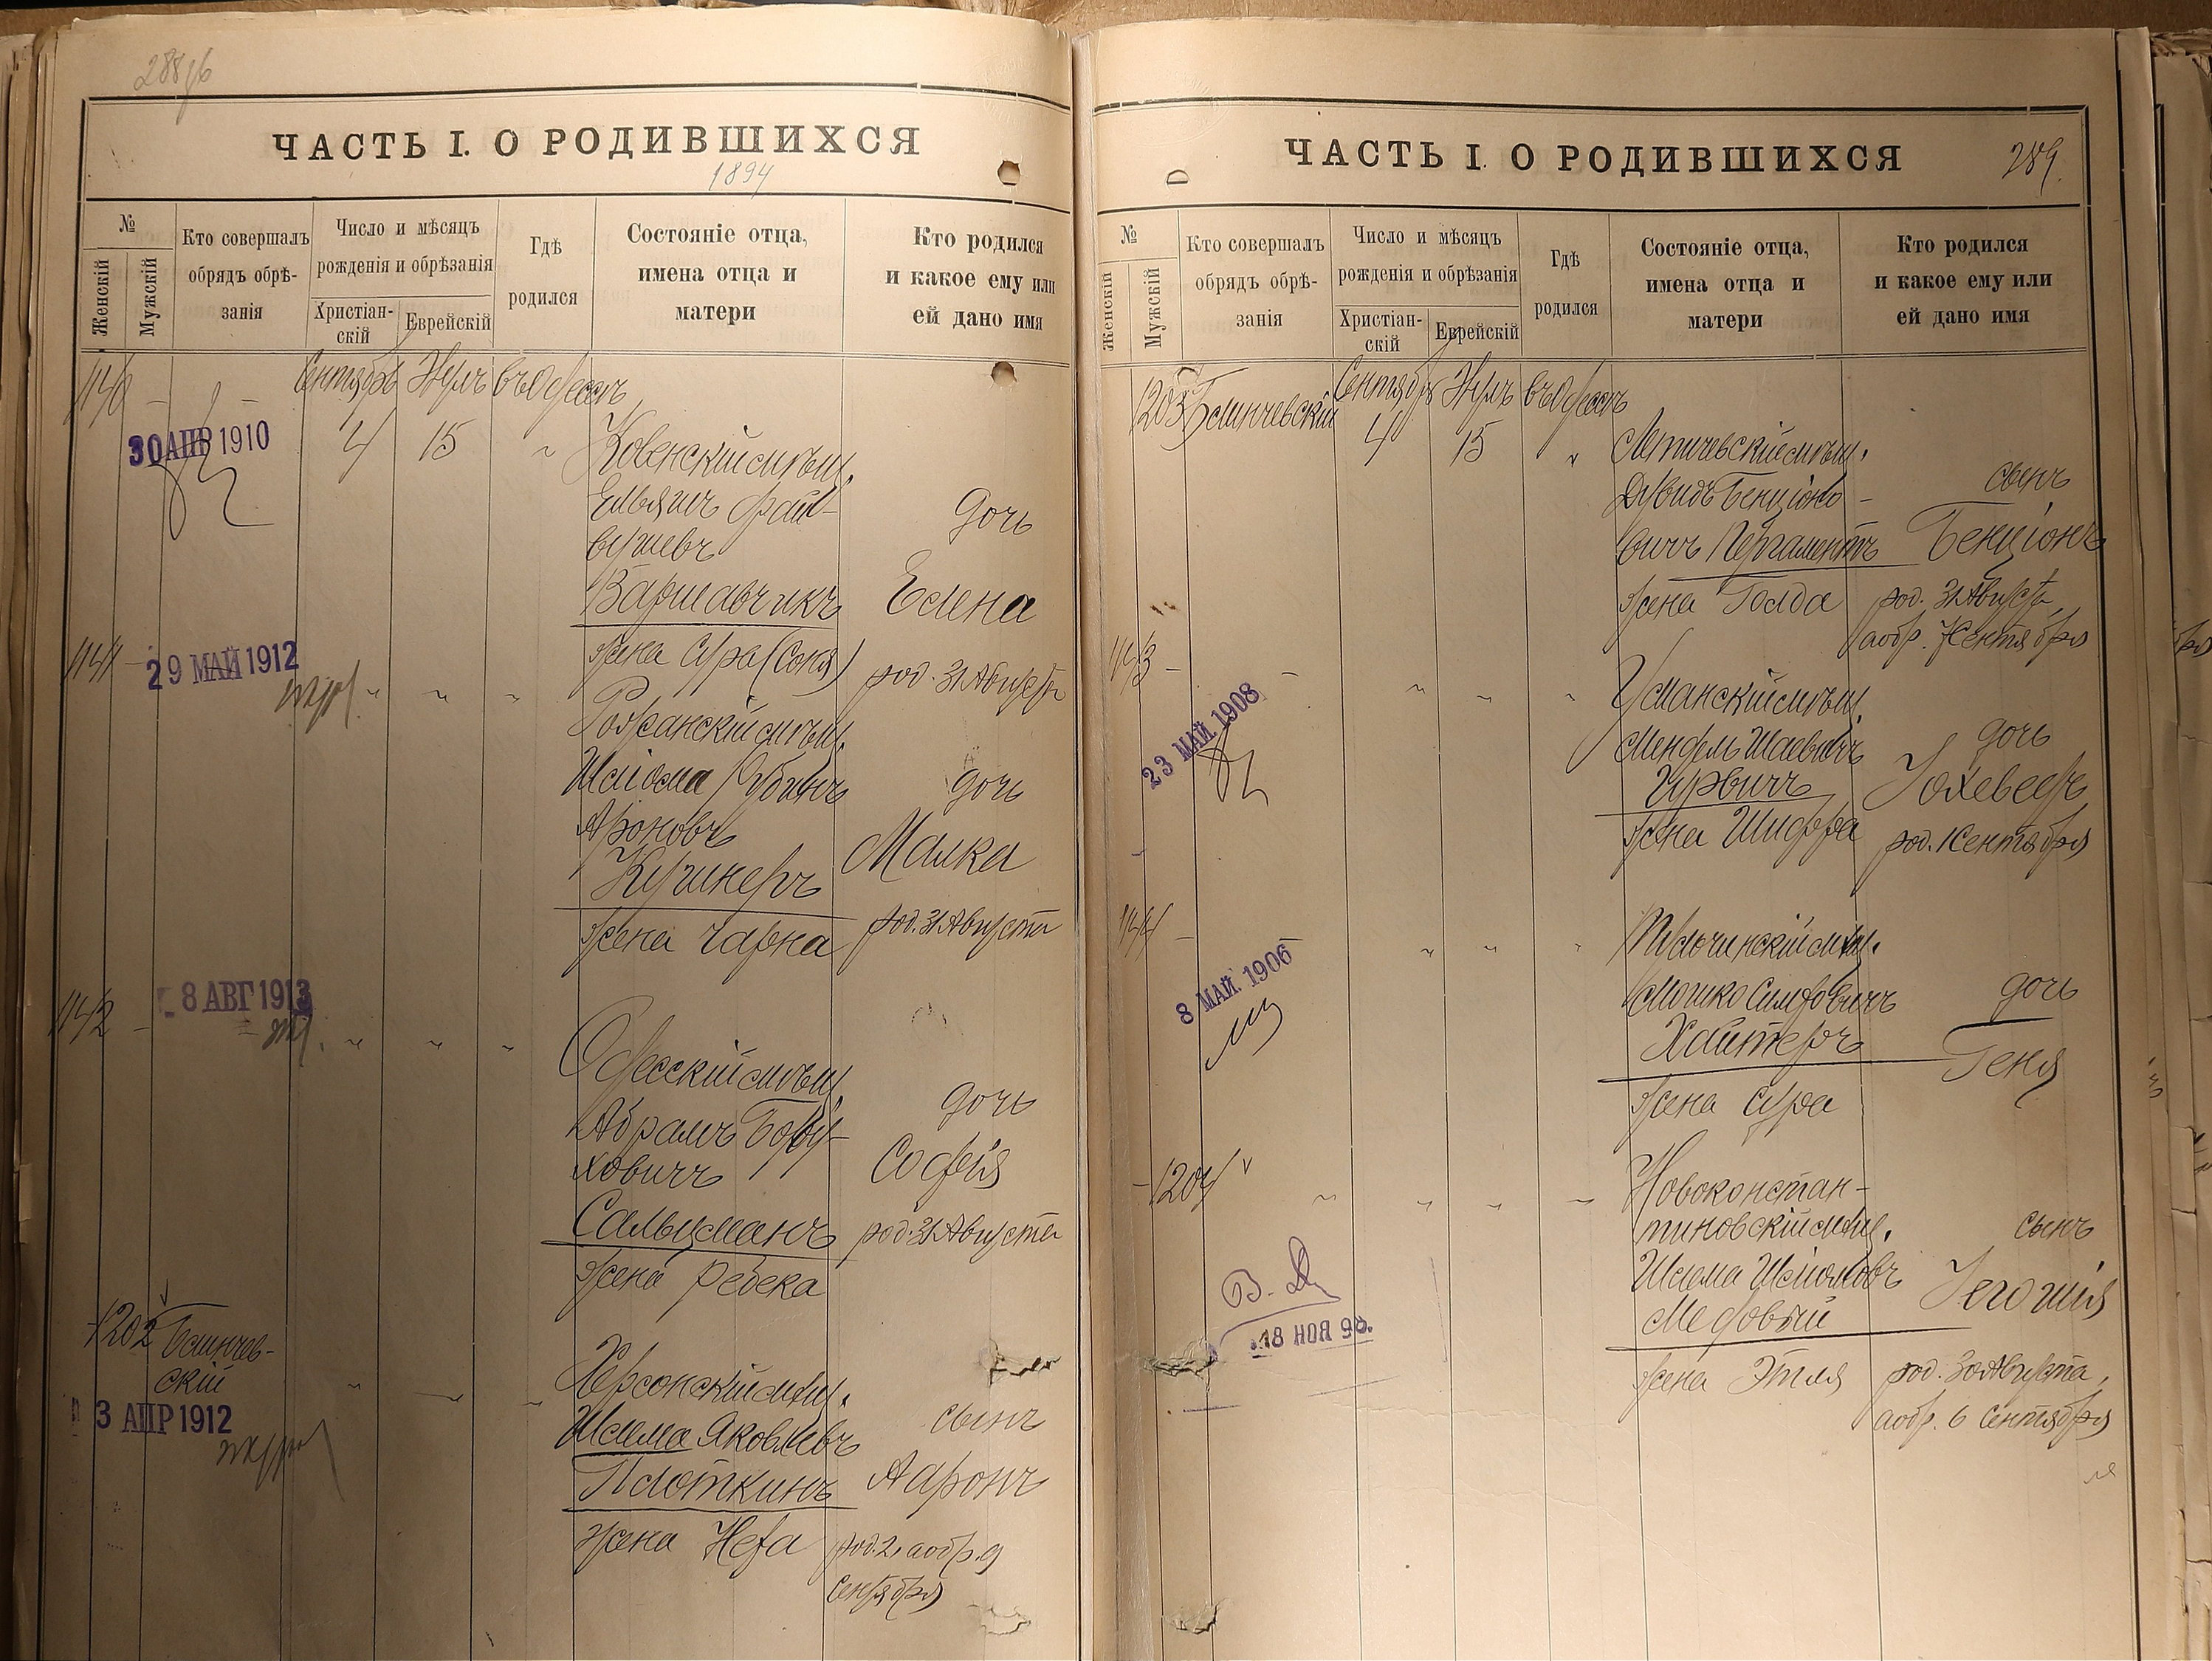 288 об
ЧАСТЬ I. О РОДИВШИХСЯ
1894
№
Женскій
Мужскій
Кто совершалъ
обрядъ обрѣ-
занія
Число и мѣсяцъ
рожденія и обрѣзанія
Христіан-
скій
Еврейскій
Гдѣ
родился
Состояніе отца,
имена отца и
матери
Кто родился
и какое ему или
ей дано имя
1140 —
Сентябрь Элулъ въ Одессѣ
30 АПР 1910
4 15 "
Ковенскій мѣщ.
Ельяшъ Фай-
вушевъ
Варшавчикъ
жена Сура (Соня)
дочь
Елена
род. 31 Августа
1141 —
29 МАЙ 1912
" " "
Рожанскій мѣщ.
Шлiома Рубинъ
Ароновъ
Кушнеръ
жена Чарна
дочь
Малка
род. 31 Августа
1142 —
8 АВГ 1913
" " "
Одесскій мѣщ.
Абрамъ Бору-
ховичъ
Сальцманъ
жена Ревека
дочь
Софія
род. 31 Августа
1202 Блинчев-
скій
3 АПР 1912
" — "
Херсонскій мѣщ.
Шлема Яковлевъ
Плоткинъ
жена Неха
сынъ
Ааронъ
род. 2, а обр. 9
Сентября
ЧАСТЬ I. О РОДИВШИХСЯ
289.
№
Женскій
Мужскій
Кто совершалъ
обрядъ обрѣ-
занія
Число и мѣсяцъ
рожденія и обрѣзанія
Христіан-
скій
Еврейскій
Гдѣ
родился
Состояніе отца,
имена отца и
матери
Кто родился
и какое ему или
ей дано имя
1203 Блинчевскій
Сентябрь Элулъ въ Одессѣ
4 15 "
Летичевскій мѣщ.
Дувидъ Бенціоно-
вичъ Пергаментъ
жена Голда
сынъ
Бенціонъ
род. 31 Августа,
а обр. 7 Сентября
1143 —
23 МАЙ 1908
" " "
Уманскій мѣщ.
Мендель Шаевичъ
Гурвичъ
жена Шифра
дочь
Іохеведъ
род. 1 Сентября
1144 —
8 МАЙ. 1906
" " "
Тульчинскій мѣщ.
Мошко Симховичъ
Хайтеръ
жена Сура
дочь
Геня
— 1204
" " " —
Новоконстан-
тиновскій мѣщ.
Шлема Шлiомовъ
Медовый
жена Этля
сынъ
Іегошія
род. 30 Августа,
а обр. 6 Сентября
18 НОЯ 98.